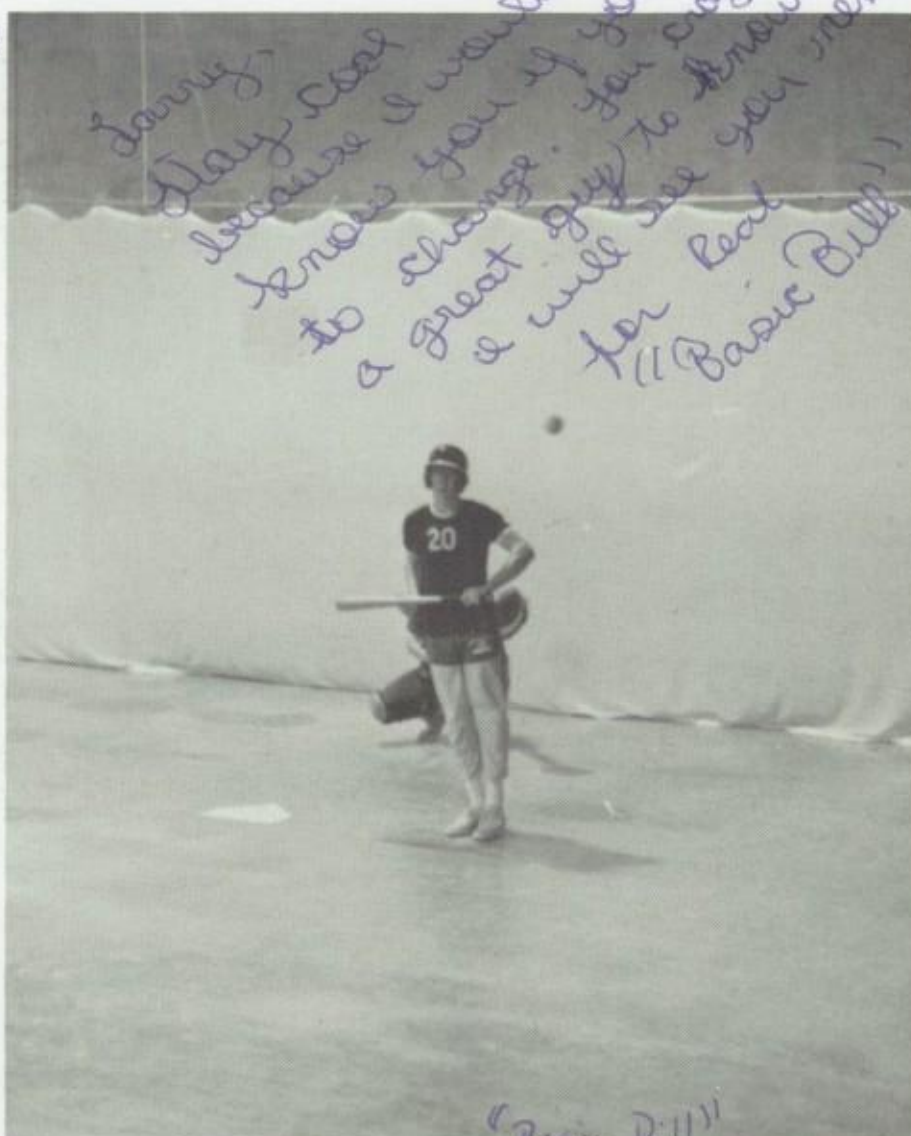 Larry,
Stay cool
because I would
know you if you
to change. You
a great guy to know
I will see you
for Real
"Basic Bill"
20
"Basic Bill"